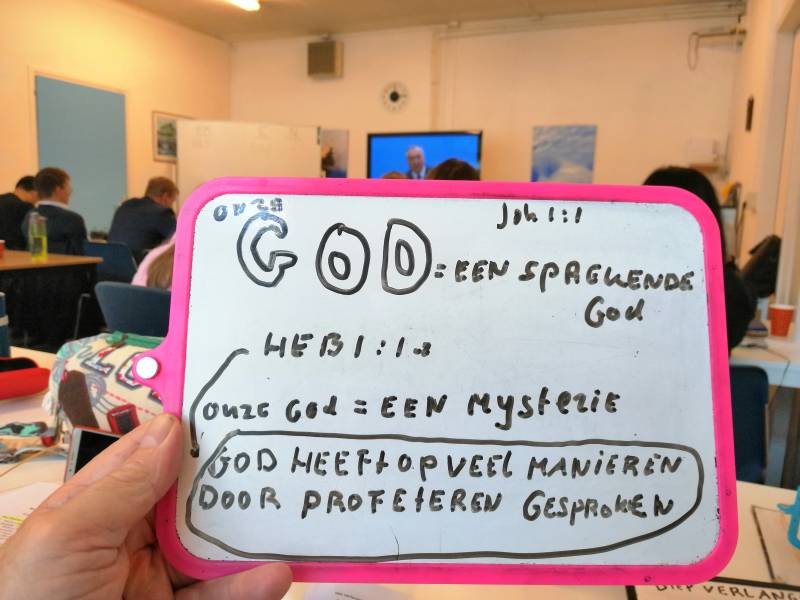 onze Joh 1:1
GOD = EEN SPREKENDE
God
HEB 1:1
onze God = EEN MYSTERIE
GOD HEEFT OP VEEL MANIEREN
DOOR PROFETEREN GESPROKEN
DIEP VERLANG